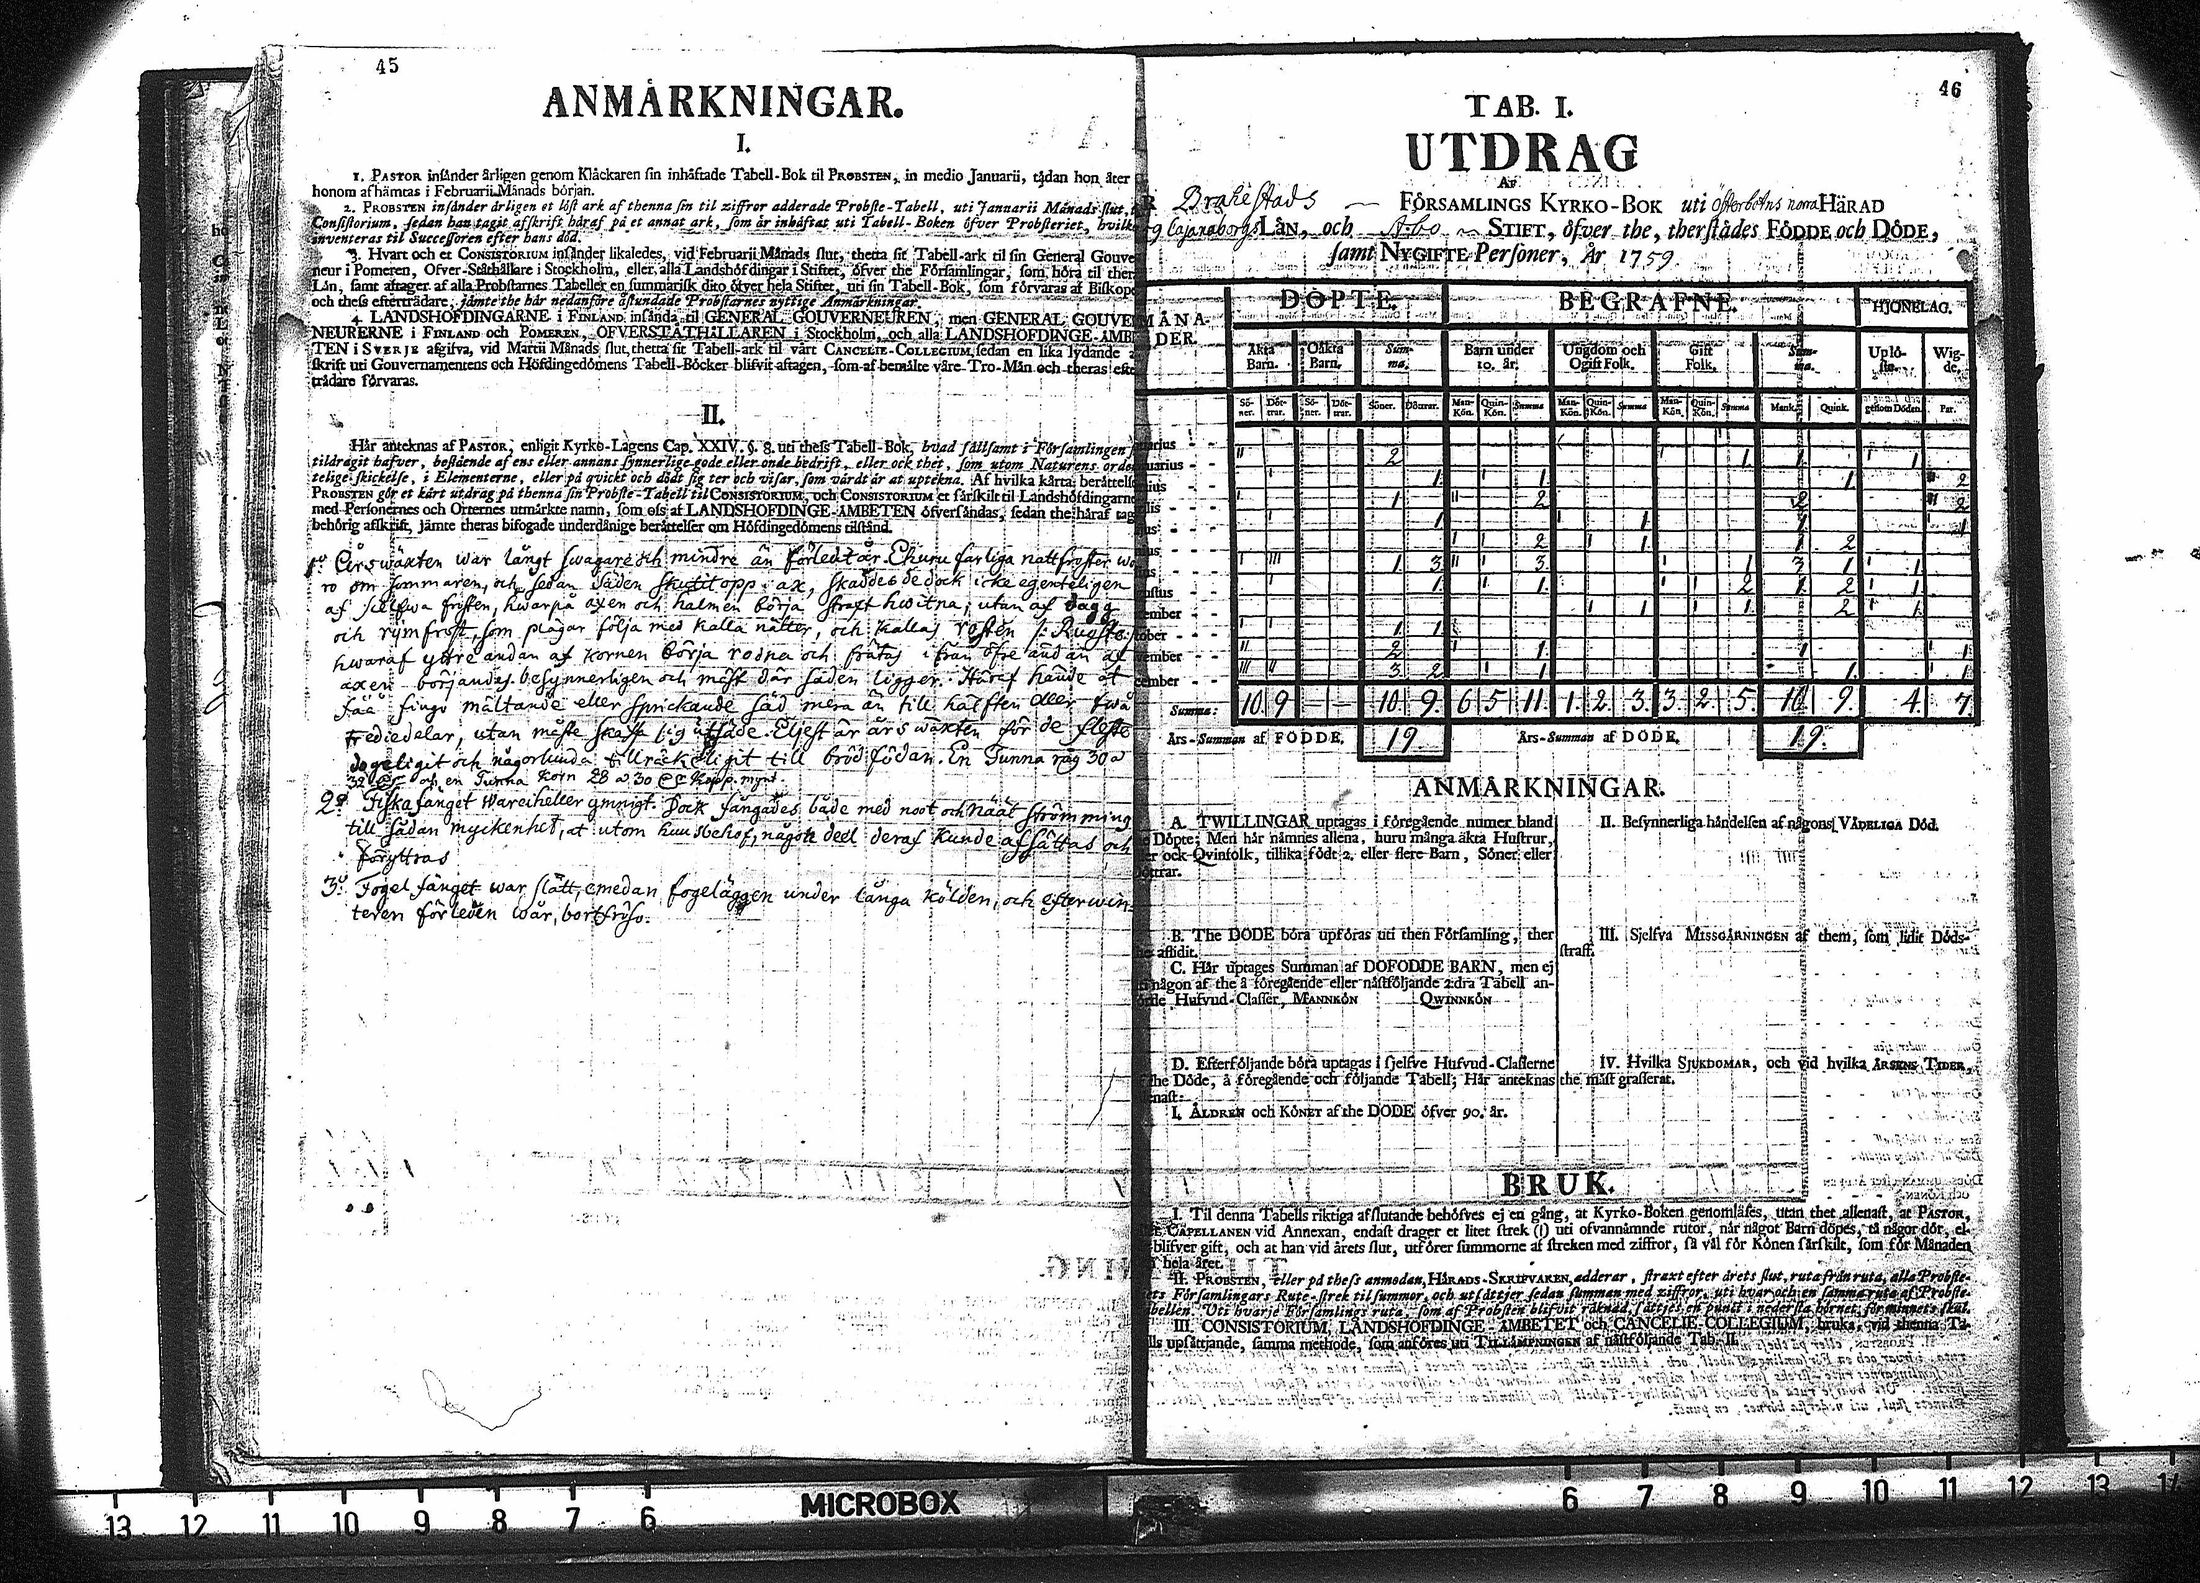 45
ANMÄRKNINGAR.
I.
1. PASTOR insänder årligen genom Klåckaren sin inhäftade Tabell-Bok til PROBSTEN, in medio Januarii, tådan hon åter
honom afhämtas i Februarii Månads början.
2. PROBSTEN insänder årligen et löst ark af thenna sin til ziffror adderade Probste-Tabell, uti Januarii Månads slut,
Consistorium, sedan han tagit afskrift häraf på et annat ark, som är inhäftat uti Tabell-Boken öfver Probsteriet, hvilke
inventeras til Successoren efter hans död.
3. Hvart och et CONSISTORIUM insänder likaledes, vid Februarii Månads slut, thetta sit Tabell-ark til sin General Gouve
neur i Pomeren, Ofver-Ståthållare i Stockholm, eller alla Landshöfdingar i Stiftet, öfver the Församlingar, som höra til ther
Län, samt aftager af alla Probstarnes Tabeller en summarisk dito öfver hela Stiftet, uti sin Tabell-Bok, som förvaras af Biskope
och thess efterträdare, jämte the här nedanföre åstundade Probstarnes nyttige Anmärkningar.
4. LANDSHÖFDINGARNE i FINLAND insända til GENERAL GOUVERNEUREN; men GENERAL GOUVE
NEURERNE i FINLAND och POMEREN, OFVERSTÅTHÅLLAREN i Stockholm, och alla LANDSHÖFDINGE-ÄMBE
TEN i SVERJE afgifva, vid Martii Månads slut, thetta sit Tabell-ark til vårt CANCELIE-COLLEGIUM, sedan en lika lydande a
skrift uti Gouvernamentens och Höfdingedömens Tabell-Böcker blifvit aftagen, som af bemälte våre Tro-Män och theras efte
trädare förvaras.
II.
Här anteknas af PASTOR, enligit Kyrko-Lagens Cap. XXIV. §. 8. uti thess Tabell-Bok, hvad sällsamt i Församlingen
tildragit hafver, bestående af ens eller annans synnerlige gode eller onde bedrift, eller ock thet, som utom Naturens orde
telige skickelse, i Elementerne, eller på qvickt och dödt sig ter och visar, som värdt är at uptekna. Af hvilka korta berättels
PROBSTEN gör et kårt utdrag på thenna sin Probste-Tabell til CONSISTORIUM, och CONSISTORIUM et särskilt til Landshöfdingarne
med Personernes och Orternes utmärkte namn, som oss af LANDSHÖFDINGE-ÄMBETEN öfversändas, sedan the häraf tag
behörig afskrift, jämte theras bifogade underdånige berättelser om Höfdingedömens tilstånd.
1o Årswäxten war långt swagare och mindre än förledit år. Ehuru farliga nattfroster wo
ro om sommaren, och sedan säden skutit opp i ax, skaddes de dock icke egenteligen
af sielfwa frosten, hwarpå axen och halmen börja straxt hwitna; utan af dagg
och rymfrost, som plägar följa med kalla nätter, och kallas rosten
hwaraf yttre ändan af kornen börja rodna och frätas ifrån öfre ändan af
axen börjandes besynnerligen och mäst där säden ligger. Häraf hände at
fåå fingo mältande eller sprickande säd mera än till hälften eller twå
trediedelar, utan måste skaffa sig utsäde. Eljest är årswäxten för de fleste
dogeligit och någorlunda tillräckeligit till brödfödan. En Tunna råg 30 a
32 och en Tunna Korn 28 a 30 Kopp. mynt.
2o Fiskafänget war ei heller ymnigt. Dock fångades både med noot och näät strömming
till sådan myckenhet, at utom huusbehof, någon deel deraf kunde afsättas och
föryttras
3o Fogelfänget war slätt, emedan fogeläggen under långa kölden, och efterwin-
teren förleden wår, bortfröso.
46
TAB. I.
UTDRAG
AF
Brahestads FÖRSAMLINGS KYRKO-BOK uti Österbotns norra HÄRAD
Cajanaborgs LÄN, och Åbo STIFT, öfver the, therstädes FÖDDE och DÖDE,
samt NYGIFTE Personer, År 1759.
DÖPTE. BEGRAFNE. HJONELAG.
MÅNA-
DER.
Äkta Barn. Oäkta Barn. Summa. Barn under 10. år. Ungdom och Ogift Folk. Gift Folk. Summa. Uplöste. Wigde.
Söner. Döttrar. Söner. Döttrar. Söner. Döttrar. Man-Kön. Quin-Kön. Summa Man-Kön. Quin-Kön. Summa Man-Kön. Quin-Kön. Summa Mank. Quink. genom Döden. Par.
Summa: 10 9 - - 10. 9. 6 5 11. 1. 2. 3. 3. 2. 5. 10. 9. 4. 7.
Års-Summan af FÖDDE. 19 Års-Summan af DÖDE. 19.
ANMÄRKNINGAR.
A. TWILLINGAR uptagas i föregående numer bland
Döpte; Men här nämnes allena, huru många äkta Hustrur,
er ock Qvinfolk, tillika födt 2. eller flere Barn, Söner eller
Döttrar.
B. The DÖDE böra upföras uti then Församling, ther
aflidit.
C. Här uptages Summan af DÖFÖDDE BARN, men ej
någon af the å föregående eller nästföljande 2:dra Tabell an-
förde Hufvud-Classer, MANNKÖN QWINNKÖN
D. Efterföljande böra uptagas i sjelfve Hufvud-Classerne
the Döde, å föregående och följande Tabell; Här anteknas
enast:
I. ÅLDREN och KÖNET af the DÖDE öfver 90. år.
II. Besynnerliga händelsen af någons VÅDELIGA Död.
III. Sjelfva MISSGÄRNINGEN af them, som lidit Döds-
straff.
IV. Hvilka SJUKDOMAR, och vid hvilka ÅRSENS TIDER,
the mäst grasserat.
BRUK.
I. Til denna Tabells riktiga afslutande behöfves ej en gång, at Kyrko-Boken genomläses, utan thet allenast, at PASTOR,
CAPELLANEN vid Annexan, endast drager et litet strek (|) uti ofvannämnde rutor, när något Barn döpes, tå någor dör, el-
blifver gift, och at han vid årets slut, utförer summorne af streken med ziffror, så väl för Könen särskilt, som för Månaden
hela året.
II. PROBSTEN, eller på thess anmodan, HÄRADS-SKRIFVAREN, adderar, straxt efter årets slut, ruta från ruta, alla Probste-
ets Församlingars Rute-strek til summor, och utsättjer sedan summan med ziffror, uti hvar och en samma ruta af Probste-
abellen. Uti hvarje Församlings ruta, som af Probsten blifvit räknad, sättjes en punct i nedersta hörnet, för minnets skul.
III. CONSISTORIUM, LANDSHÖFDINGE-ÄMBETET och CANCELIE-COLLEGIUM, bruka, vid thenna Ta-
lls upsättjande, samma methode, som anföres uti TILLÄMPNINGEN af nästföljande Tab. II.
MICROBOX
13 12 11 10 9 8 7 6 6 7 8 9 10 11 12 13 14